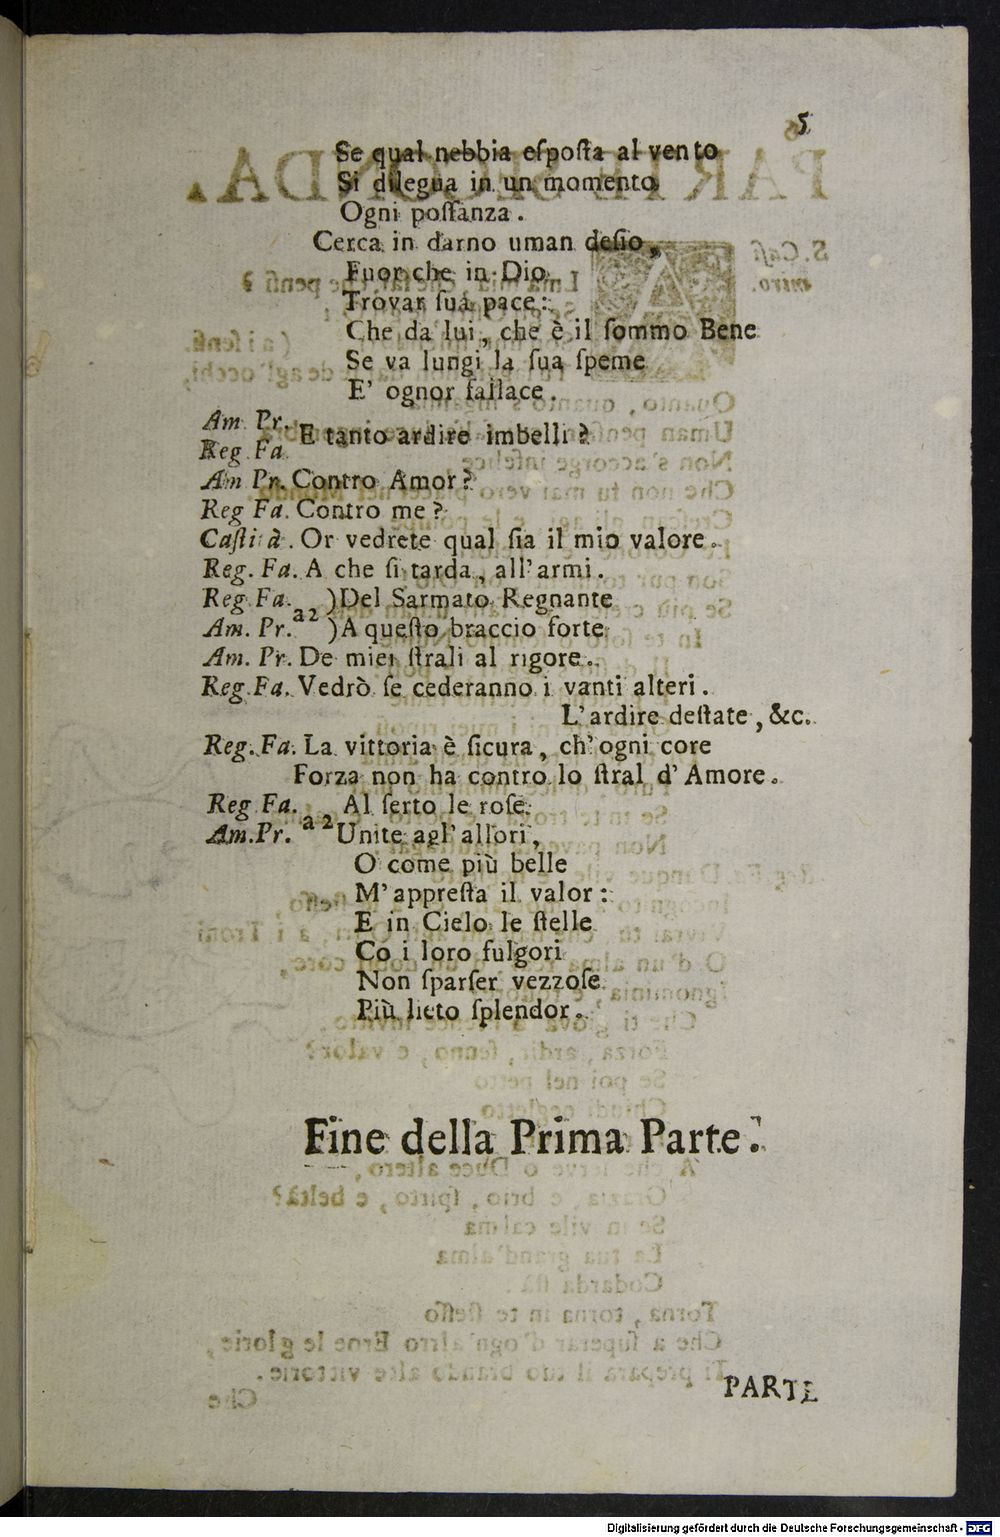 5
Se qual nebbia eſpoſta al vento
Si dilegua in un momento
Ogni poſſanza.
Cerca in darno uman deſio,
Fuor che in Dio
Trovar ſua pace:
Che da lui, che è il ſommo Bene
Se va lungi la ſua ſpeme
E' ognor fallace.
Am Pr.
Reg Fa E tanto ardire imbelli?
Am Pr. Contro Amor?
Reg Fa. Contro me?
Caſtità. Or vedrete qual ſia il mio valore.
Reg. Fa. A che ſi tarda, all'armi.
Reg Fa. a 2 )Del Sarmato Regnante
Am. Pr. )A queſto braccio forte
Am. Pr. De miei ſtrali al rigore.
Reg. Fa. Vedrò ſe cederanno i vanti alteri.
L'ardire deſtate, &c.
Reg. Fa. La vittoria è ſicura, ch'ogni core
Forza non ha contro lo ſtral d'Amore.
Reg Fa. a 2 Al ſerto le roſe
Am. Pr. Unite agl'allori,
O come più belle
M'appreſta il valor:
E in Cielo le ſtelle
Co i loro fulgori
Non ſparſer vezzoſe
Più lieto ſplendor.
Fine della Prima Parte.
PARTE
Digitalisierung gefördert durch die Deutsche Forschungsgemeinschaft - DFG